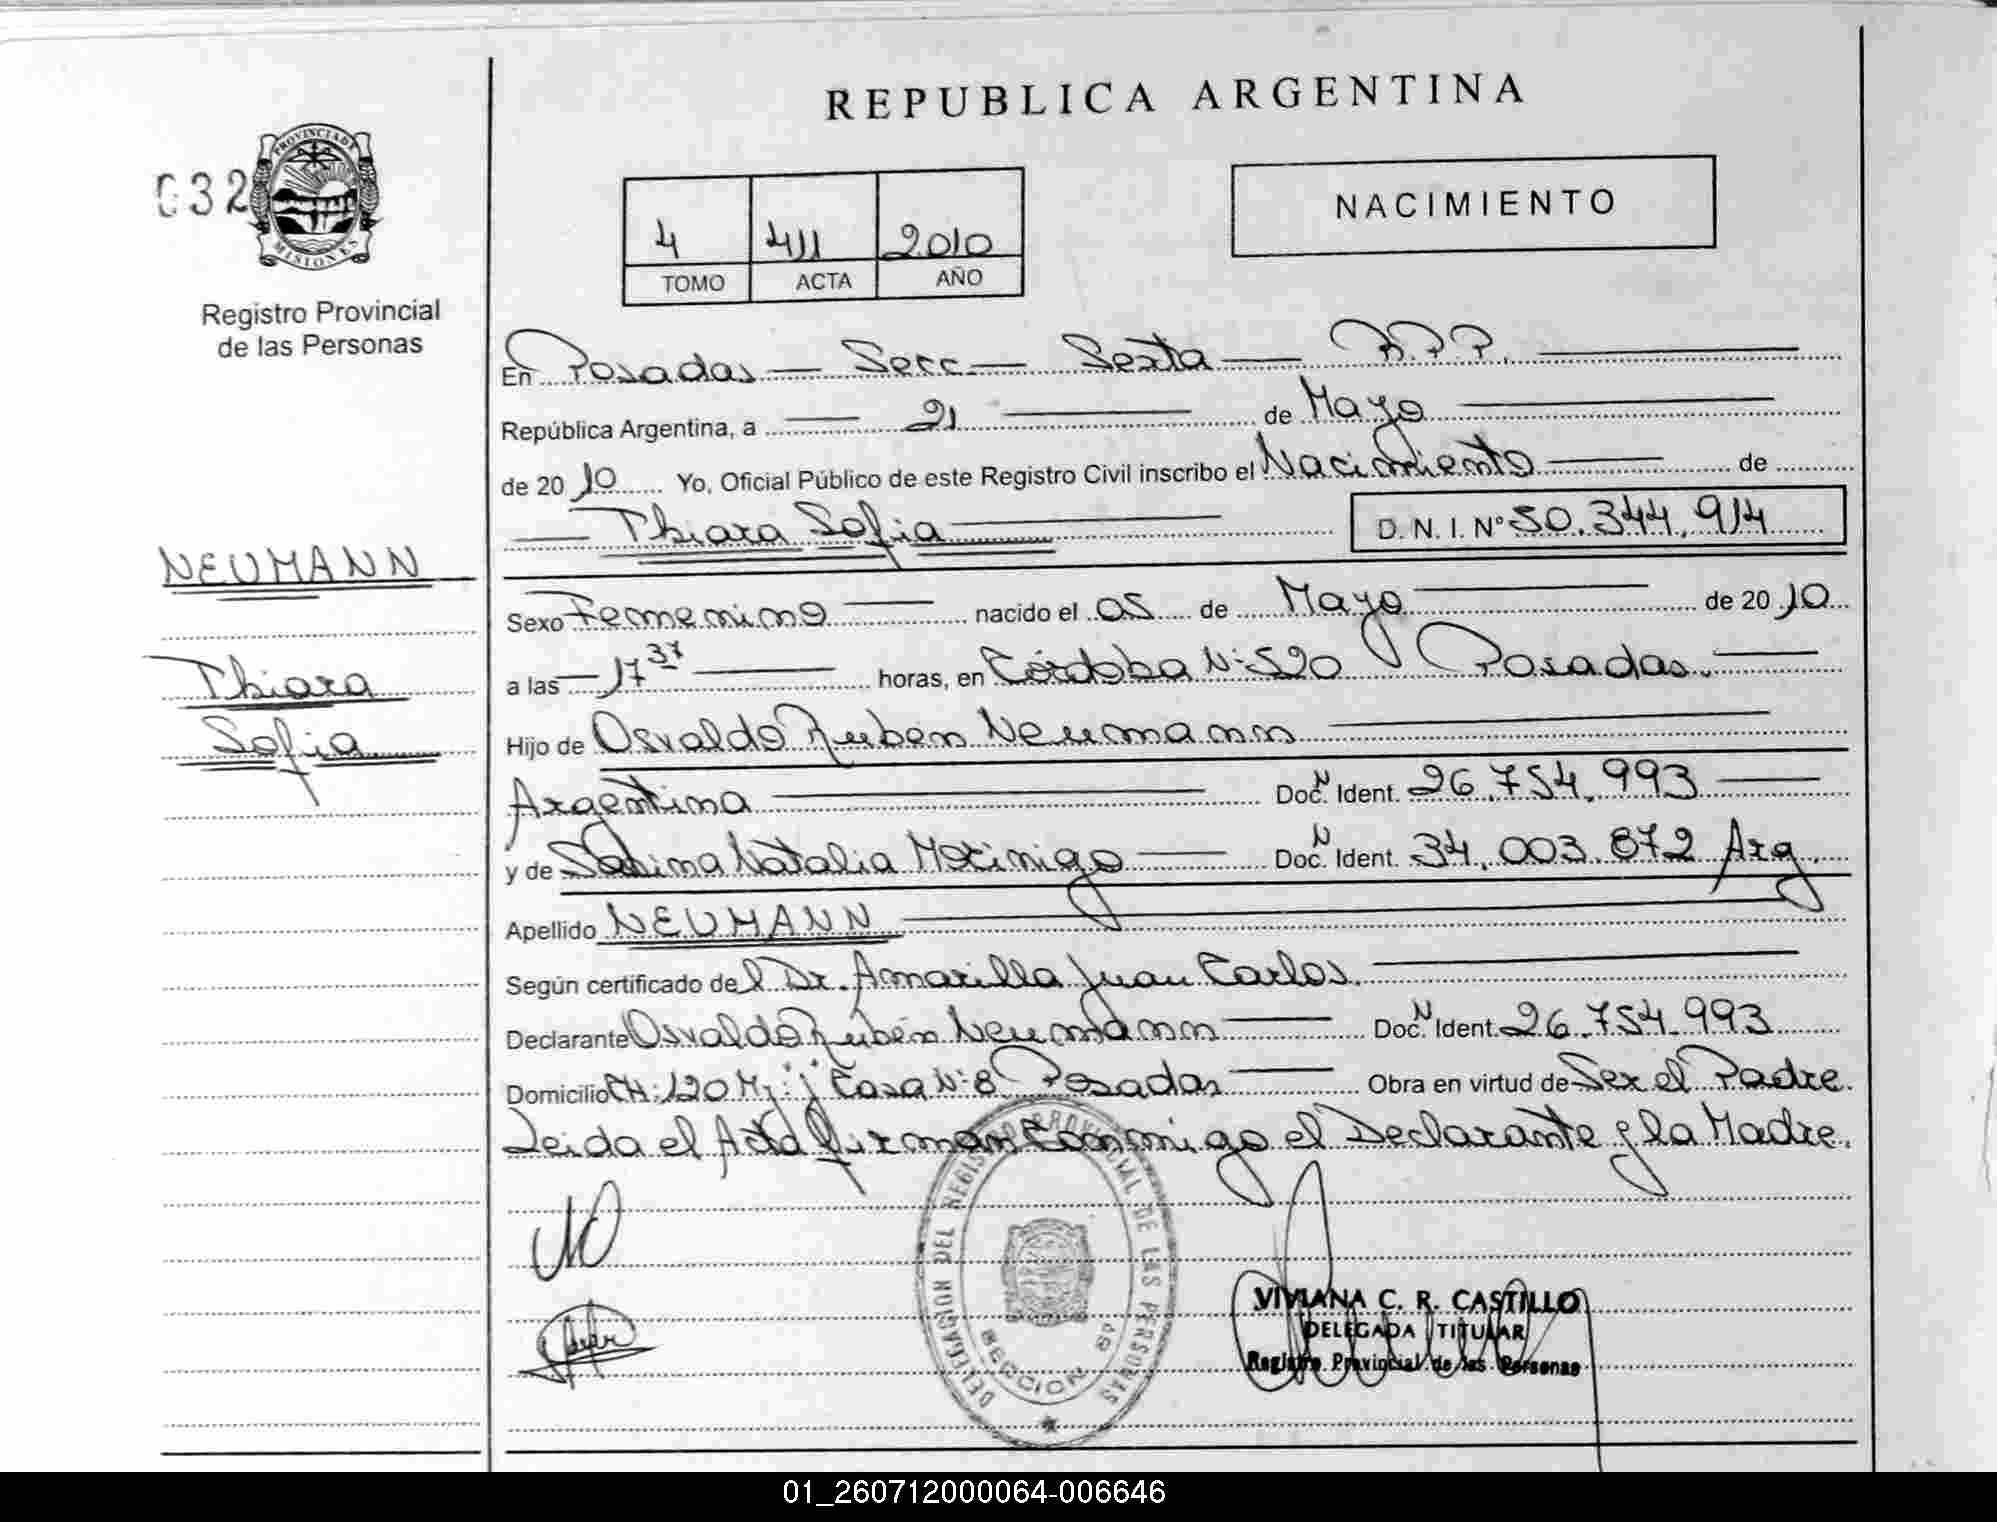 REPUBLICA ARGENTINA
032
PROVINCIA DE MISIONES
Registro Provincial
de las Personas
4 411 2010
TOMO ACTA AÑO
NACIMIENTO
NEUMANN
Thiara
Sofia
En Posadas — Secc — Sexta — R.P.P.
República Argentina, a 21 de Mayo
de 2010 Yo, Oficial Público de este Registro Civil inscribo el Nacimiento de
Thiara Sofia D. N. I. N° 50.344.914
Sexo Femenino nacido el 05 de Mayo de 2010
a las 17 37 horas, en Córdoba N: 520 Posadas.
Hijo de Osvaldo Ruben Neumann
Argentina Doc. N Ident. 26.754.993
y de Sabina Natalia Morinigo Doc. N Ident. 34.003.872 Arg.
Apellido NEUMANN
Según certificado del Dr. Amarilla Juan Carlos.
Declarante Osvaldo Rubén Neumann Doc. N Ident. 26.754.993
Domicilio CH: 120 Mz: "J" Casa N: 8 Posadas Obra en virtud de Ser el Padre.
Leida el Acta firman Conmigo el Declarante y la Madre.
DELEGACION DEL REGISTRO PROVINCIAL DE LAS PERSONAS
SECCION 6ª
VIVIANA C. R. CASTILLO
DELEGADA TITULAR
Registro Provincial de las Personas
01_260712000064-006646